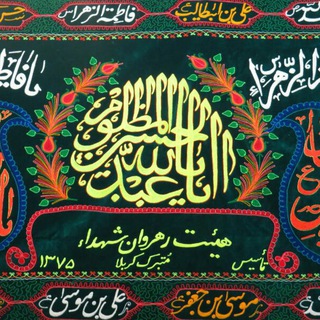 علی بن ابیطالب فاطمة الزهراء
یا فاطمة الزهراء
یا اباعبدالله الحسین المظلوم
هیئت رهروان شهداء
تأسیس ۱۳۷۵ متبرک کربلا
موسی بن جعفر علی بن موسی